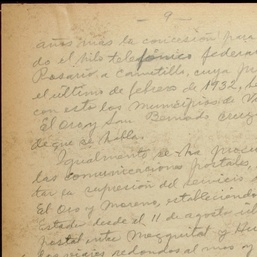 - 9 -
años más la concesión para
do el hilo telefónico federal
Rosario a Canutillo, cuya pr
el último de febrero de 1932, be
con esto los Municipios de Va
El Oro y San Bernardo
de que se habla.
Igualmente se ha procu
las comunicaciones postales,
ter la supresión del servicio
El Oro y Moreno, estableciendo
Estado desde el 11 de agosto úl
postal entre Mezquital y Hu
viajes redondos al mes y